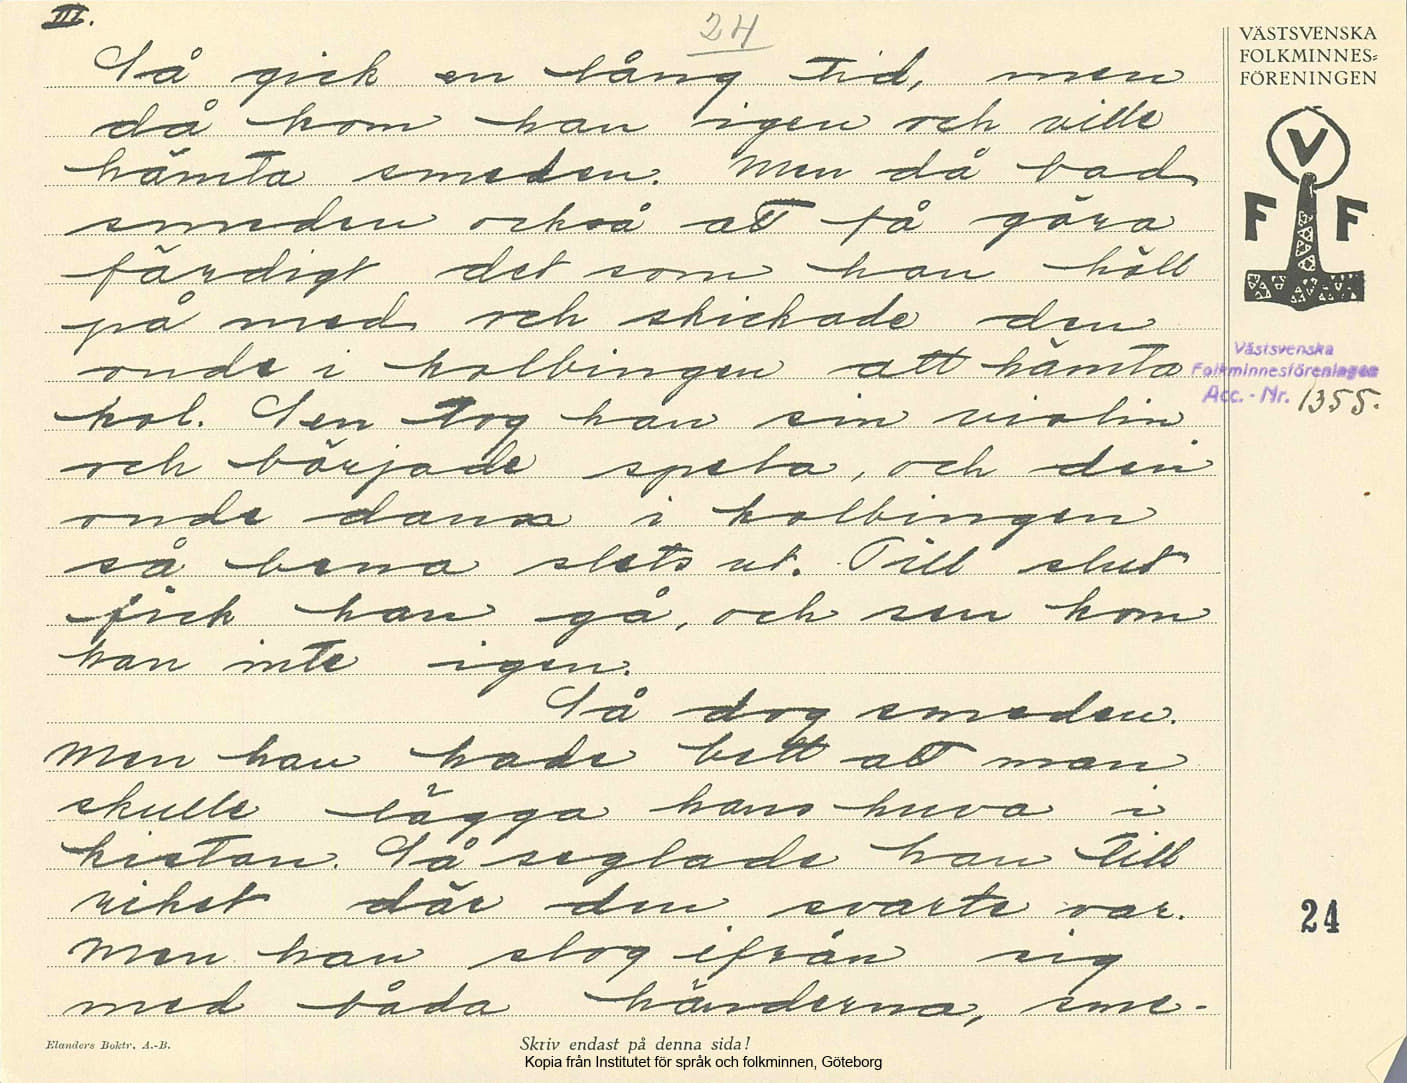 III.
24
Så gick en lång tid, men
då kom han igen och ville
hämta smeden. Men då bad
smeden också att få göra
färdigt det som han höll
på med och skickade den
onde i kolbingen att hämta
kol. Sen tog han sin violin
och började spela, och den
onde dansa i kolbingen
så bena slets ut. Till slut
fick han gå, och sen kom
han inte igen.
Så dog smeden.
Men han hade bett att man
skulle lägga hans huva i
kistan. Så seglade han till
riket där den svarte var.
Men han slog ifrån sig
med båda händerna, sme-
VÄSTSVENSKA
FOLKMINNES=
FÖRENINGEN
V
F F
Västsvenska
Folkminnesföreningen
Acc. - Nr. 1355.
24
Elanders Boktr. A.-B.
Skriv endast på denna sida!
Kopia från Institutet för språk och folkminnen, Göteborg